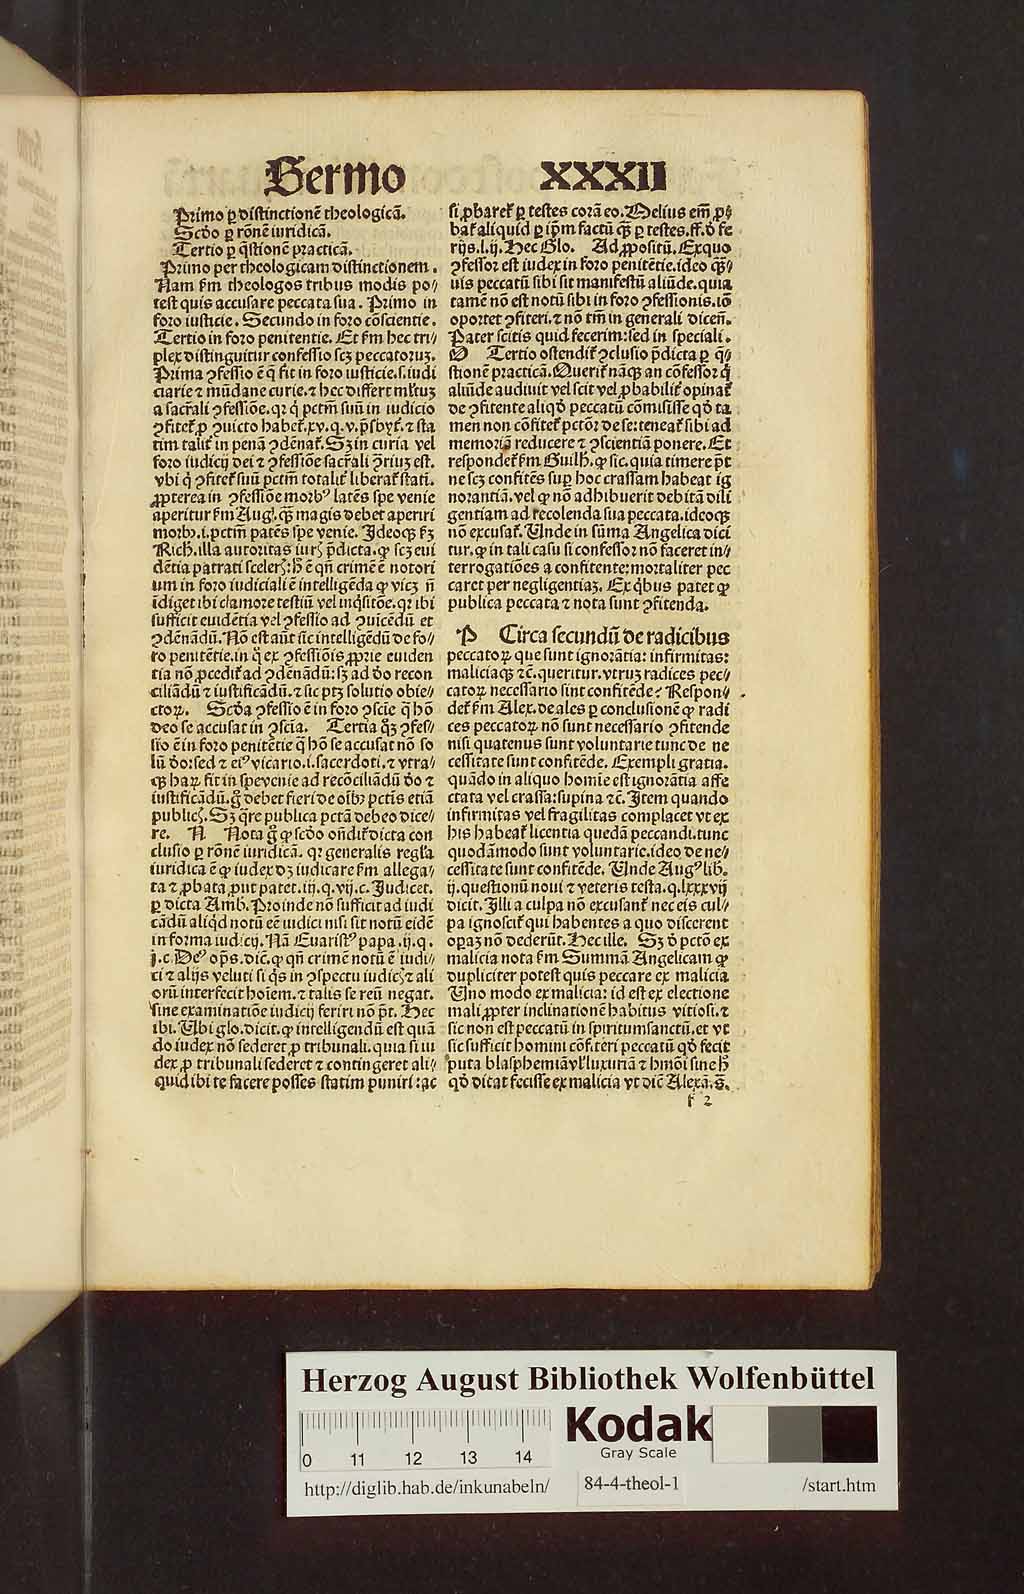 Sermo XXXII
Primo ꝑ distinctionē theologicā.
Scďo ꝑ rōnē iuridicā.
Tertio ꝑ q̄stionē practicā.
Primo per theologicam distinctionem.
Nam ẜm theologos tribus modis po⸗
test quis accusare peccata sua. Primo in
foro iusticie. Secundo in foro cōscientie.
Tertio in foro penitentie. Et ẜm hec tri⸗
plex distinguitur confessio scꝫ peccatoruꝫ.
Prima ꝯfessio ē q̄ fit in foro iusticie.s.iudi
ciarie ⁊ mūdane curie.⁊ hec differt ml̓tuꝫ
a sacr̄ali ꝯfessiōe.qꝛ q̇ pctm̄ suū in iudicio
ꝯfitet᷑ ꝓ ꝯuicto habet᷑.xv.q.v.p̄sbyt᷑.⁊ sta
tim talit᷑ in penā ꝯdēnat᷑. Sꝫ in curia vel
foro iudicij dei ⁊ ꝯfessiōe sacr̄ali ꝯ̄riuꝫ est.
vbi q̇ ꝯfitet᷑ suū pctm̄ totalit᷑ liberat᷑ stati.
ꝓpterea in ꝯfessiōe morbꝰ latēs spe venie
aperitur ẜm Augꝰ. qȝ magis debet aperiri
morbꝰ.i.pctm̄ patēs spe venie. Ideoqȝ ẜꝫ
Rich. illa autoritas iurꝭ p̄dicta.ꝙ scꝫ eui
dētia patrati scelerꝭ:ħ ē qn̄ crimē ē notori
um in foro iudiciali ē intelligēda ꝙ vicꝫ nō
īdiget ibi clamore testiū vel inq̇sitōe.qꝛ ibi
sufficit euidētia vel ꝯfessio ad ꝯuicēdū et
ꝯdēnādū. Nō est aūt sic intelligēdū de fo⸗
ro penitētie.in q̇ ex ꝯfessiōis ꝓprie euiden
tia nō ꝓcedit᷑ ad ꝯdēnādū:sꝫ ad ďo recon
ciliādū ⁊ iustificādū.⁊ sic ptꝫ solutio obie⸗
ctoꝝ. Scďa ꝯfessio ē in foro ꝯscie q̄ hō
deo se accusat in ꝯscia. Tertia q̇ꝫ ꝯfes⸗
sio ē in foro penitētie q̄ hō se accusat nō so
lū ďo:sed ⁊ eiꝰ vicario.i.sacerdoti.⁊ vtra⸗
qȝ haꝝ fit in spe venie ad recōciliādū ďo ⁊
iustificādū.g̊ debet fieri de oībꝰ pctis etiā
publicꝭ. Sꝫ q̄re publica pctā debeo dice⸗
re. N Nota g̊ ꝙ scďo oñdit᷑ dicta con
clusio ꝑ rōnē iuridicā. qꝛ generalis regl̓a
iuridica ē ꝙ iudex dꝫ iudicare ẜm allega⸗
ta ⁊ ꝓbata ꝓut patet.iij.q.vij.c. Judicet.
ꝑ dicta Amb. Proinde nō sufficit ad iudi
cādū aliq̇d notū eē iudici nisi sit notū eidē
in forma iudicij. Nā Euaristꝰ papa.ij.q.
j.c. Deꝰ op̄s. dic̄.ꝙ qn̄ crimē notū ē iudi⸗
ci ⁊ alijs veluti si q̇s in ꝯspectu iudicꝭ ⁊ ali
orū interfecit hoīem.⁊ talis se reū negat.
sine examinatiōe iudicij feriri nō p̄t. Hec
ibi. Vbi glo.dicit.ꝙ intelligendū est quā
do iudex nō sederet ꝓ tribunali.quia si iu
dex ꝓ tribunali sederet ⁊ contingeret ali⸗
quid ibi te facere posses statim puniri:ac
si ꝓbaret᷑ ꝑ testes corā eo. Melius em̄ ꝓ⸗
bat᷑ aliquid ꝑ ip̄m factū qȝ ꝑ testes.ff.ď fe
rijs.l.ij. Hec Glo. Ad ꝓpositū. Ex quo
ꝯfessor est iudex in foro penitētie.ideo qȝ⸗
uis peccatū sibi sit manifestū aliūde.quia
tamē nō est notū sibi in foro ꝯfessionis.iō
oportet ꝯfiteri.⁊ nō tm̄ in generali dicen̄.
Pater scitis quid fecerim:sed in speciali.
O Tertio ostendit᷑ ꝯclusio p̄dicta ꝑ q̄⸗
stionē practicā. Querit᷑ nāqȝ an cōfessor q̇
aliūde audiuit vel scit vel ꝓbabilit᷑ opinat᷑
de ꝯfitente aliqď peccatū cōmisisse qď ta
men nō cōfitet᷑ pctōr de se:teneat᷑ sibi ad
memoriā reducere ⁊ ꝯscientiā ponere. Et
respondet᷑ ẜm Guilħ. ꝙ sic.quia timere p̄t
ne scꝫ confitēs suꝑ hoc crassam habeat ig
norantiā.vel ꝙ nō adhibuerit debitā dili
gentiam ad recolenda sua peccata.ideoqȝ
nō excusat᷑. Unde in sūma Angelica dici
tur.ꝙ in tali casu si confessor nō faceret in⸗
terrogatiōes a confitente:mortaliter pec
caret per negligentiaꝫ. Ex q̇bus patet ꝙ
publica peccata ⁊ nota sunt ꝯfitenda.
P Circa secundū de radicibus
peccatoꝝ que sunt ignorātia: infirmitas:
maliciaqȝ ⁊c̄.queritur.vtruꝫ radices pec⸗
catoꝝ necessario sint confitēde? Respon⸗
det᷑ ẜm Alex.de ales ꝑ conclusionē ꝙ radi
ces peccatoꝝ nō sunt necessario ꝯfitende
nisi quatenus sunt voluntarie tunc de ne
cessitate sunt confitēde. Exempli gratia.
quādo in aliquo homīe est ignorātia affe
ctata vel crassa:supina ⁊c̄. Item quando
infirmitas vel fragilitas complacet vt ex
his habeat᷑ licentia quedā peccandi.tunc
quodāmodo sunt voluntarie.ideo de ne⸗
cessitate sunt confitēde. Unde Augꝰ lib.
ij.questionū noui ⁊ veteris testa.q.lxxxvij
dicit. Illi a culpa nō excusant᷑ nec eis cul⸗
pa ignoscit᷑ qui habentes a quo discerent
oꝑaꝫ nō dederūt. Hec ille. Sꝫ ď pctō ex
malicia nota ẜm Summā Angelicam ꝙ
dupliciter potest quis peccare ex malicia
Uno modo ex malicia: id est ex electione
mali ꝓpter inclinationē habitus vitiosi.⁊
sic non est peccatū in spiritumsanctū.et vt
sic sufficit homini cōfiteri peccatū qď fecit
puta blasphemiā vl̓ luxuriā ⁊ hmōi sine ħ
qď dicat fecisse ex malicia vt dic̄ Alexā.ꝯ̄.
f 2
Herzog August Bibliothek Wolfenbüttel
0 11 12 13 14
Kodak
Gray Scale
http://diglib.hab.de/inkunabeln/ 84-4-theol-1 /start.htm